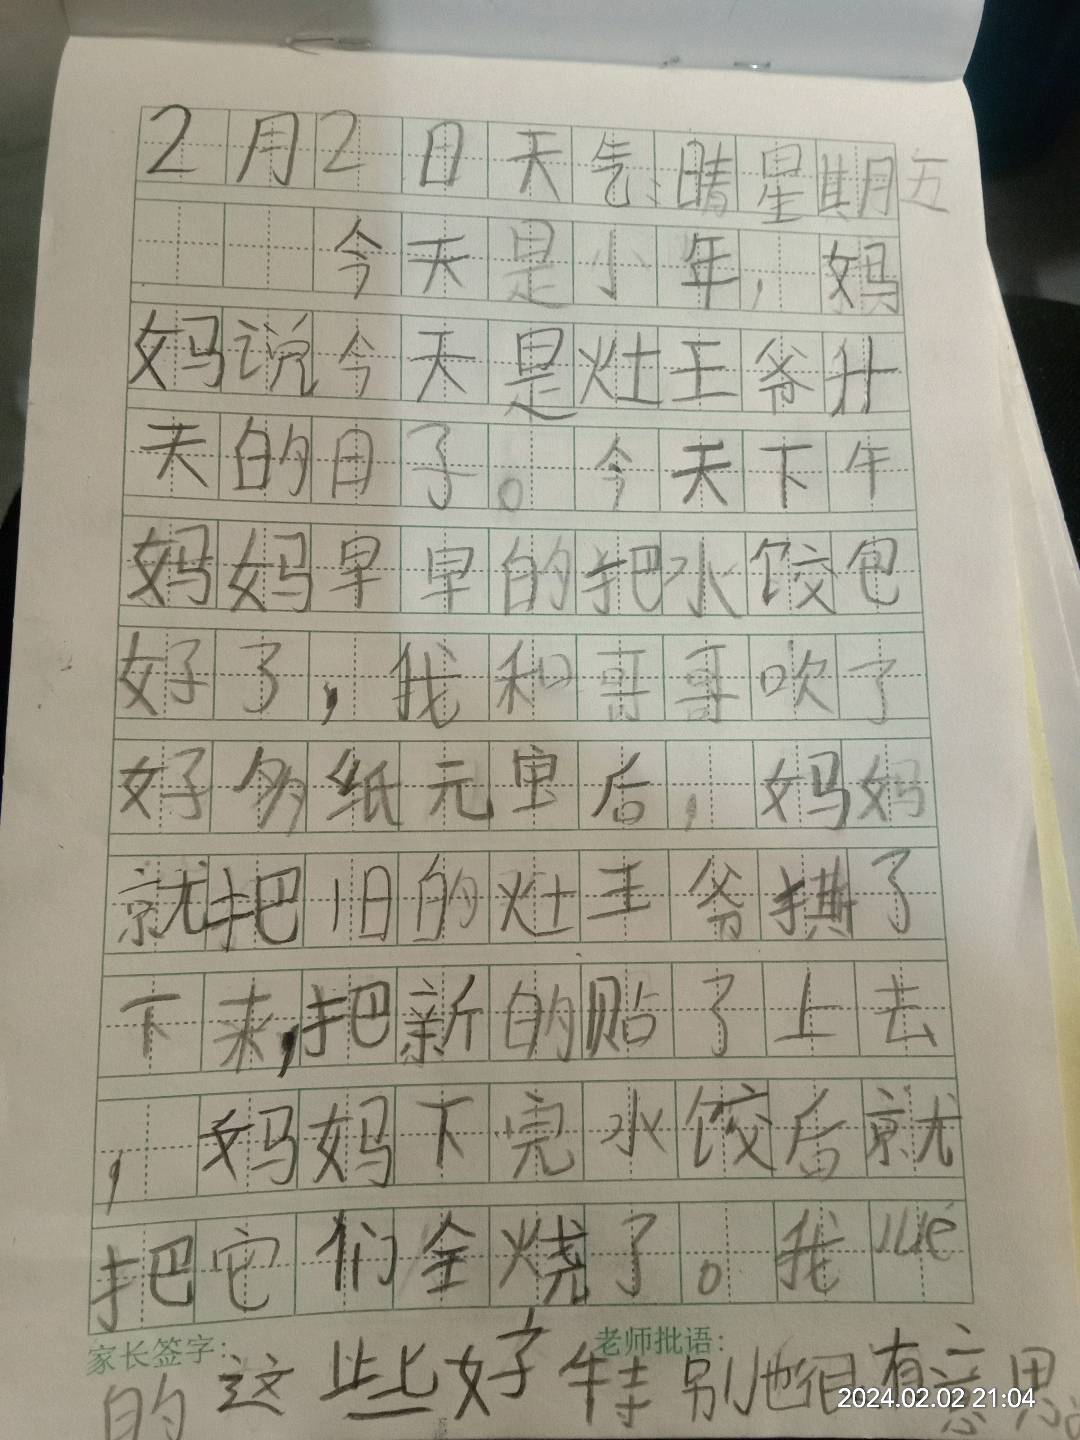 2月2日天气:晴星期五
今天是小年,妈
妈说今天是灶王爷升
天的日子。今天下午
妈妈早早的把水饺包
好了,我和哥哥吹了
好多纸元宝后,妈妈
就把旧的灶王爷撕了
下来,把新的贴了上去
,妈妈下完水饺后就
把它们全烧了。我jué
家长签字: 老师批语:
的这些好特别也很有意思。
2024.02.02 21:04